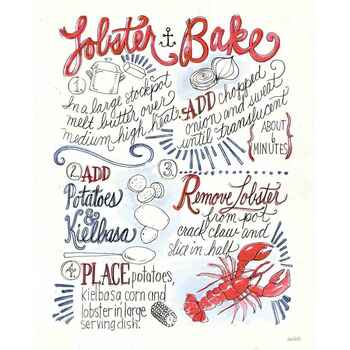 Lobster Bake
1.
In a large stockpot
melt butter over
medium high heat.
ADD chopped
onion and sweat
until translucent
{ABOUT
6
MINUTES}
2. ADD
Potatoes
&
Kielbasa
3.
Remove Lobster
from pot
crack claw and
slice in half
4. PLACE potatoes,
kielbasa corn and
lobster in large
serving dish.